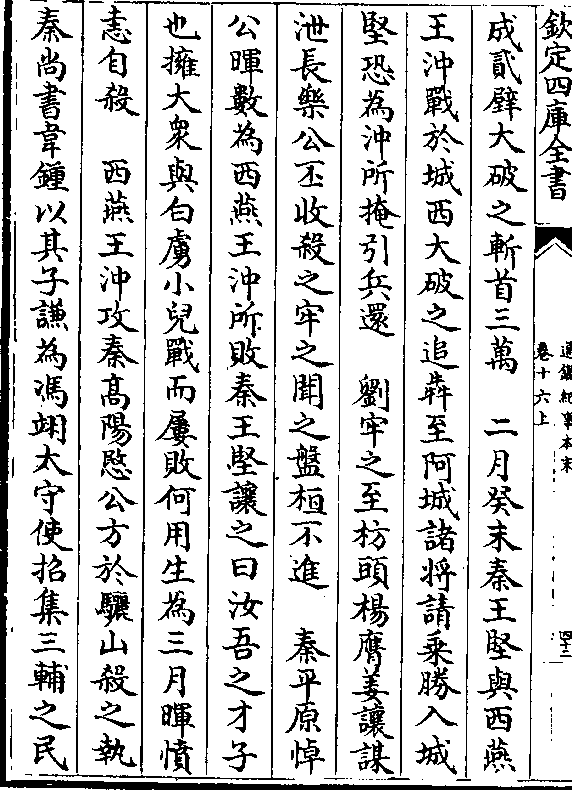 欽定四庫全書
通鑑紀事本末
卷十六上
四十二
成貳壁大破之斬首三萬　二月癸未秦王堅與西燕
王沖戰於城西大破之追犇至阿城諸将請乗勝入城
堅恐為沖所掩引兵還　劉牢之至枋頭楊膺姜讓謀
泄長樂公丕收殺之牢之聞之盤桓不進　秦平原悼
公暉數為西燕王沖所敗秦王堅讓之曰汝吾之才子
也擁大衆與白虜小兒戰而屢敗何用生為三月暉憤
恚自殺　西燕王沖攻秦高陽愍公方於驪山殺之執
秦尚書韋鍾以其子謙為馮翊太守使招集三輔之民